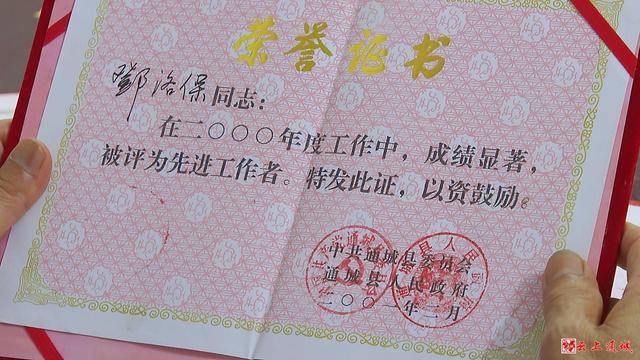 荣誉证书
鄧洛保同志：
在二〇〇〇年度工作中，成绩显著，
被评为先进工作者。特发此证，以资鼓励。
中共通城县委员会
通城县人民政府
二〇〇一年二月
云上通城